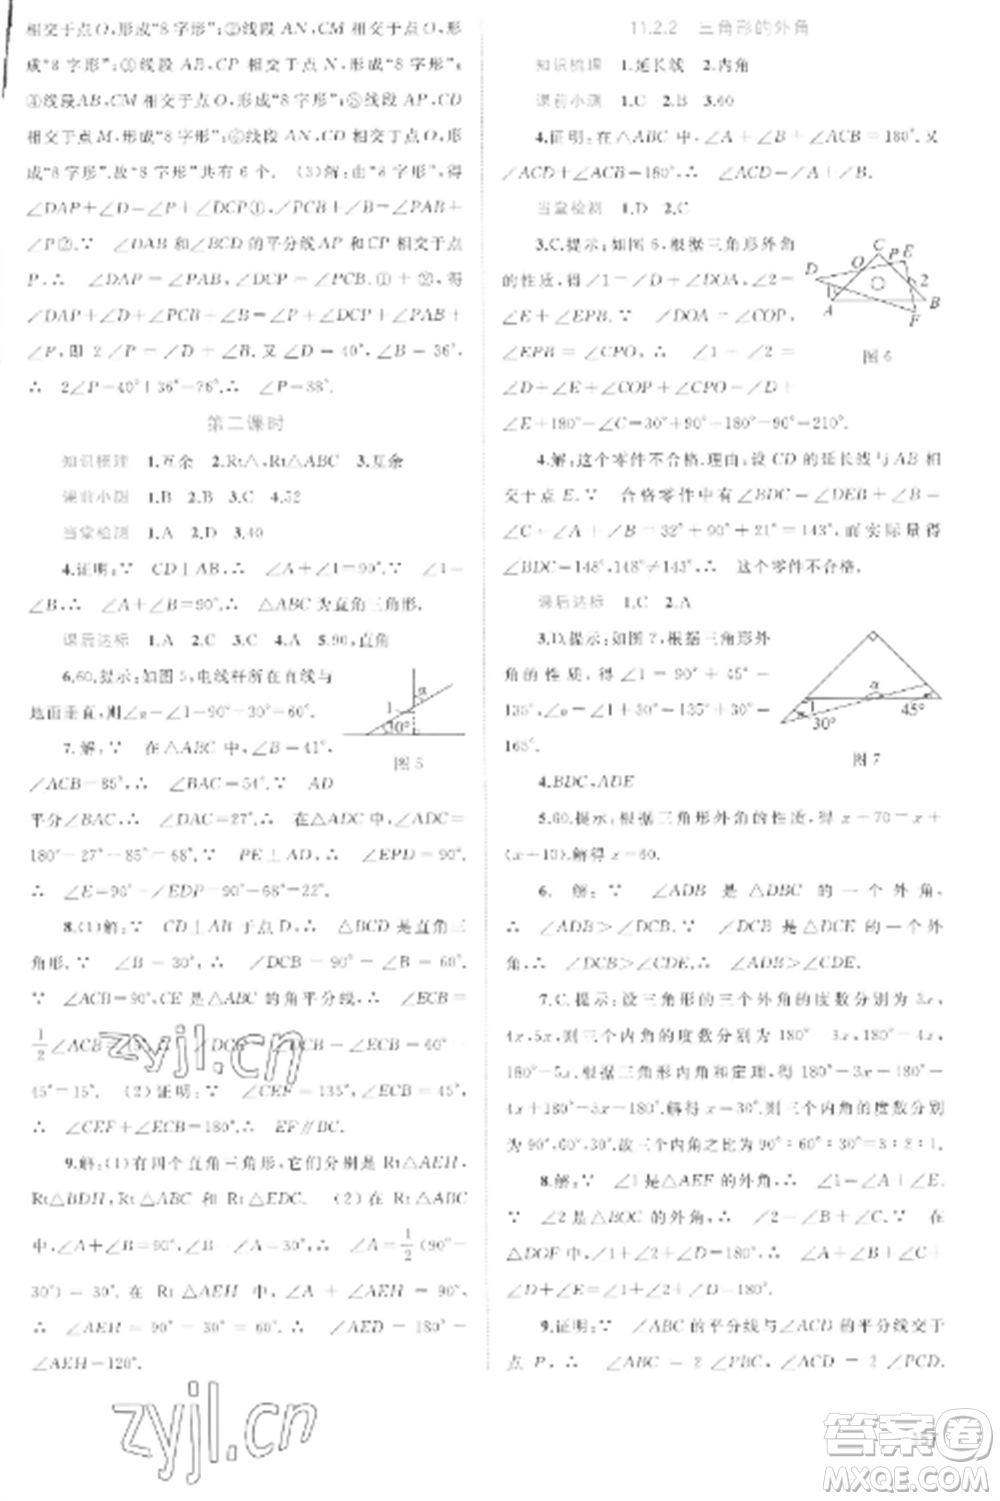 相交于点O,形成“8字形”;②线段AN,CM相交于点O,形
成“8字形”;③线段AB,CP相交于点N,形成“8字形”;
④线段AB,CM相交于点O,形成“8字形”;⑤线段AP,CD
相交于点M,形成“8字形”;⑥线段AN,CD相交于点O,形
成“8字形”.故“8字形”共有6个. (3)解:由“8字形”,得
∠DAP+∠D=∠P+∠DCP①,∠PCB+∠B=∠PAB+
∠P②.∵ ∠DAB和∠BCD的平分线AP和CP相交于点
P,∴ ∠DAP=∠PAB,∠DCP=∠PCB.①+②,得
∠DAP+∠D+∠PCB+∠B=∠P+∠DCP+∠PAB+
∠P,即2∠P=∠D+∠B.又∠D=40°,∠B=36°,
∴ 2∠P=40°+36°=76°.∴ ∠P=38°.
第二课时
知识梳理 1.互余 2.Rt△,Rt△ABC 3.互余
课前小测 1.B 2.B 3.C 4.52
当堂检测 1.A 2.D 3.40
4.证明:∵ CD⊥AB,∴ ∠A+∠ACD=90°.∵ ∠1=
∠B,∴ ∠A+∠B=90°.∴ △ABC为直角三角形.
课后达标 1.A 2.C 3.C 4.A 5.90,直角
6.60.提示:如图5,电线杆所在直线与
地面垂直,则∠α=∠1=90°-30°=60°.
1 α 30°
图5
7.解:∵ 在△ABC中,∠B=41°,
∠ACB=85°,∴ ∠BAC=54°.∵ AD
平分∠BAC,∴ ∠DAC=27°.∴ 在△ADC中,∠ADC=
180°-27°-85°=68°.∵ PE⊥AD,∴ ∠EPD=90°.
∴ ∠E=90°-∠EDP=90°-68°=22°.
8.(1)解:∵ CD⊥AB于点D,∴ △BCD是直角三
角形.∵ ∠B=30°,∴ ∠DCB=90°-∠B=90°-30°=60°.
∵ ∠ACB=90°,CE是△ABC的角平分线,∴ ∠ECB=
1/2∠ACB=45°.∴ ∠DCE=∠DCB-∠ECB=60°-
45°=15°. (2)证明:∵ ∠CEF=135°,∠ECB=45°,
∴ ∠CEF+∠ECB=180°.∴ EF∥BC.
9.解:(1)有四个直角三角形,它们分别是Rt△AEH,
Rt△BDH,Rt△ABC和Rt△EDC. (2)在Rt△ABC
中,∵ ∠A+∠C=90°,∠C-∠A=30°,∴ ∠A=1/2(90°-
30°)=30°.在Rt△AEH中,∵ ∠A+∠AEH=90°,
∴ ∠AEH=90°-30°=60°.∴ ∠AED=180°-
∠AEH=120°.
11.2.2 三角形的外角
知识梳理 1.延长线 2.内角
课前小测 1.C 2.B 3.60
4.证明:在△ABC中,∠A+∠B+∠ACB=180°.又
∠ACD+∠ACB=180°,∴ ∠ACD=∠A+∠B.
当堂检测 1.D 2.C
3.C.提示:如图6,根据三角形外角
的性质,得∠1=∠D+∠DOA,∠2=
∠E+∠EPB.∵ ∠DOA=∠COP,
∠EPB=∠CPO,∴ ∠1+∠2=
∠D+∠E+∠COP+∠CPO=∠D+
∠E+180°-∠C=30°+90°+180°-90°=210°.
C O P E D 1 2 A B F
图6
4.解:这个零件不合格.理由:设CD的延长线与AB相
交于点E.∵ 合格零件中有∠BDC=∠DEB+∠B=
∠C+∠A+∠B=32°+90°+21°=143°,而实际量得
∠BDC=148°,148°≠143°,∴ 这个零件不合格.
课后达标 1.C 2.A
3.D.提示:如图7,根据三角形外
角的性质,得∠1=90°+45°=
135°,∠α=∠1+30°=135°+30°=
165°.
1 α 30° 45°
图7
4.BDC,ADE
5.60.提示:根据三角形外角的性质,得x+70=x+
(x+10).解得x=60.
6.解:∵ ∠ADB是△DBC的一个外角,
∴ ∠ADB>∠DCB.∵ ∠DCB是△DCE的一个外
角,∴ ∠DCB>∠CDE.∴ ∠ADB>∠CDE.
7.C.提示:设三角形的三个外角的度数分别为3x,
4x,5x,则三个内角的度数分别为180°-3x,180°-
4x,180°-5x.根据三角形内角和定理,得180°-3x+180°-
4x+180°-5x=180°.解得x=30°.故三个内角的度数分别
为90°,60°,30°.故三个内角之比为90°:60°:30°=3:2:1.
8.解:∵ ∠1是△AEF的外角,∴ ∠1=∠A+∠E.
∵ ∠2是△BOC的外角,∴ ∠2=∠B+∠C.∵ 在
△DOF中,∠1+∠2+∠D=180°,∴ ∠A+∠B+∠C+
∠D+∠E=∠1+∠2+∠D=180°.
9.证明:∵ ∠ABC的平分线与∠ACD的平分线交于
点P,∴ ∠ABC=2∠PBC,∠ACD=2∠PCD.
zyjl.cn
zyjl.cn
答案卷
MXQE.COM